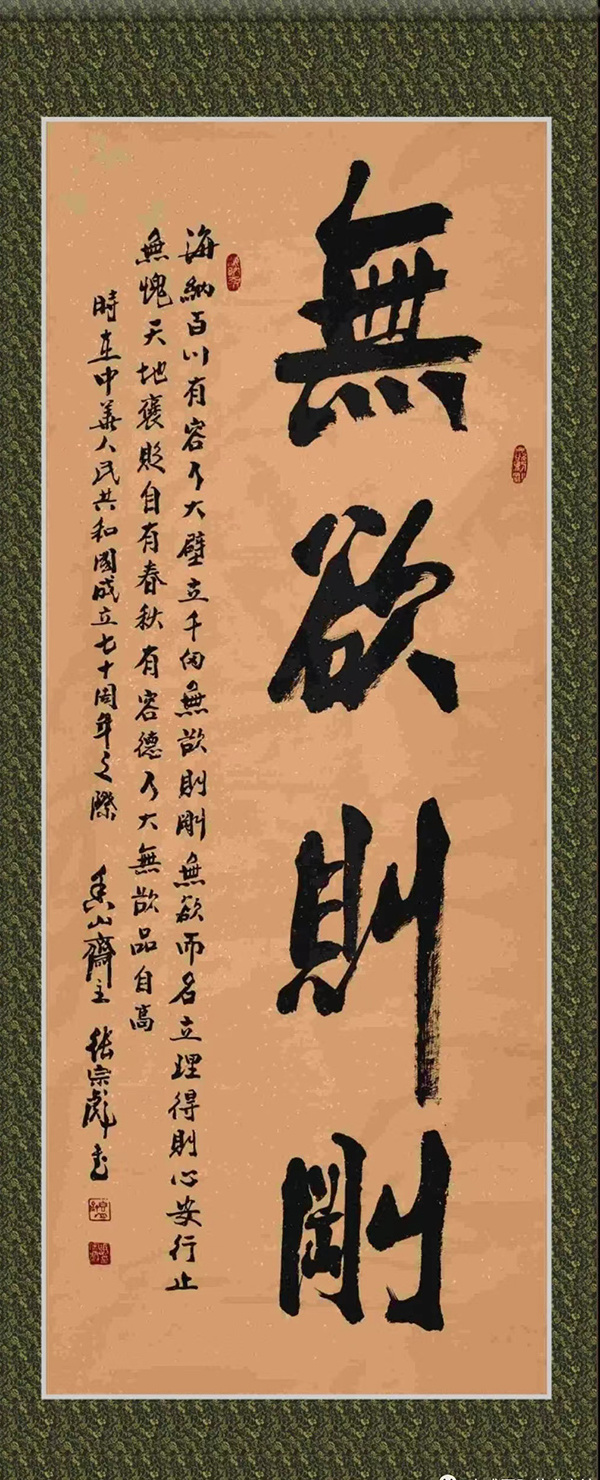 無欲則剛
海納百川有容乃大壁立千仞無欲則剛無欲而名立理得則心安行止
無愧天地褒貶自有春秋有容德乃大無欲品自高
時在中華人民共和國成立七十周年之際 香山齋主 張宗彪書